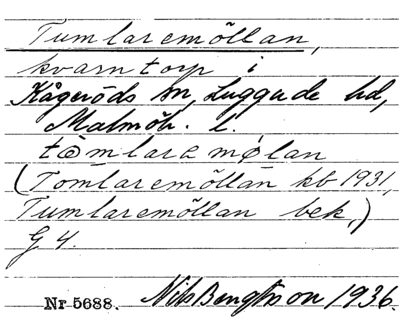 Tumlaremöllan,
kvarntorp i
Kågeröds sn, Luggude hd,
Malmöh. l.
tωmlara mølan
(Tomlaremöllan kb 1931,
Tumlaremöllan bek.)
G 4.
Nr 5688. Nils Bengtsson 1936.